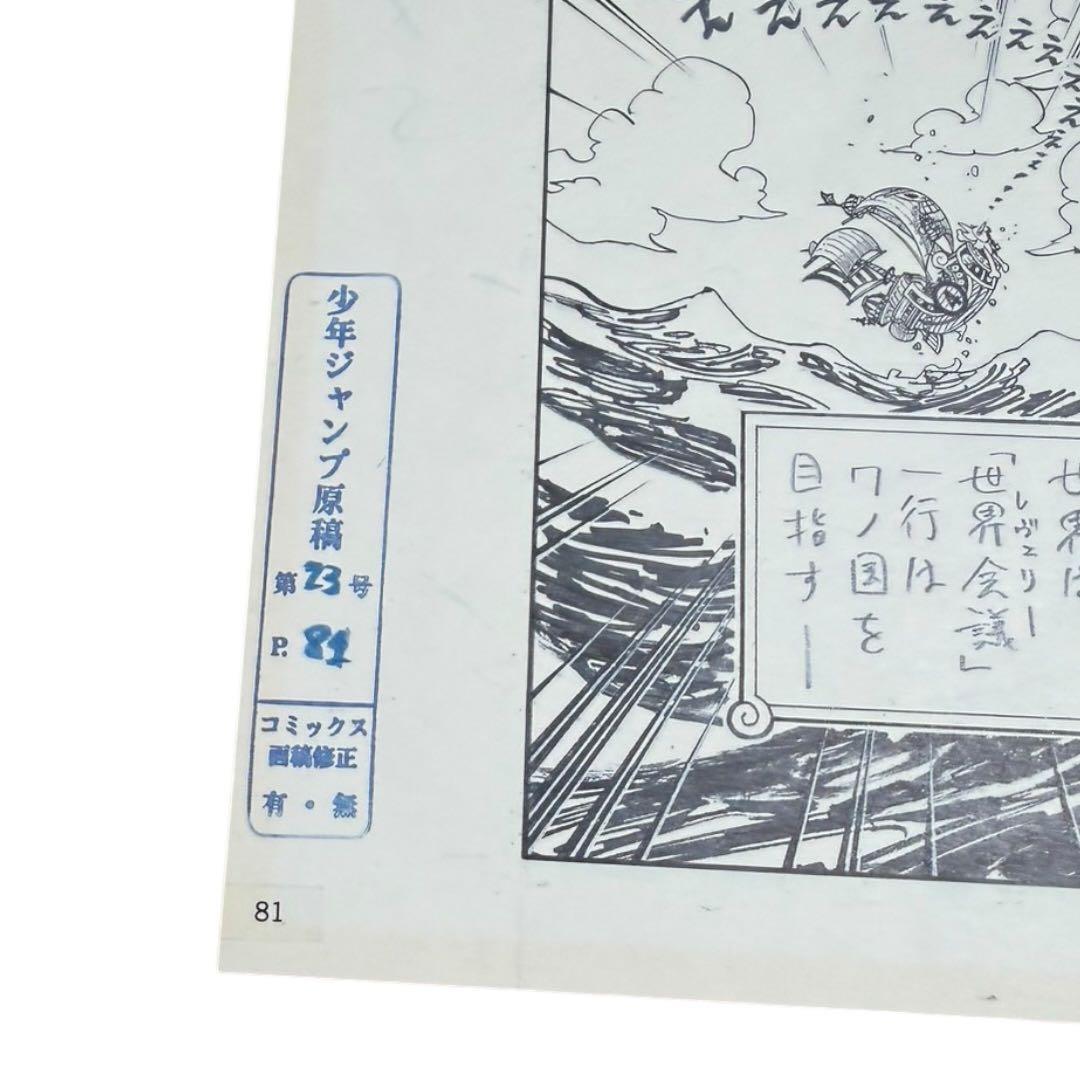 えええええええええええ
世界は
「世界会議」
レヴェリー
一行は
ワノ国を
目指すー
少年ジャンプ原稿
第23号
P. 81
コミックス
画稿修正
有・無
81